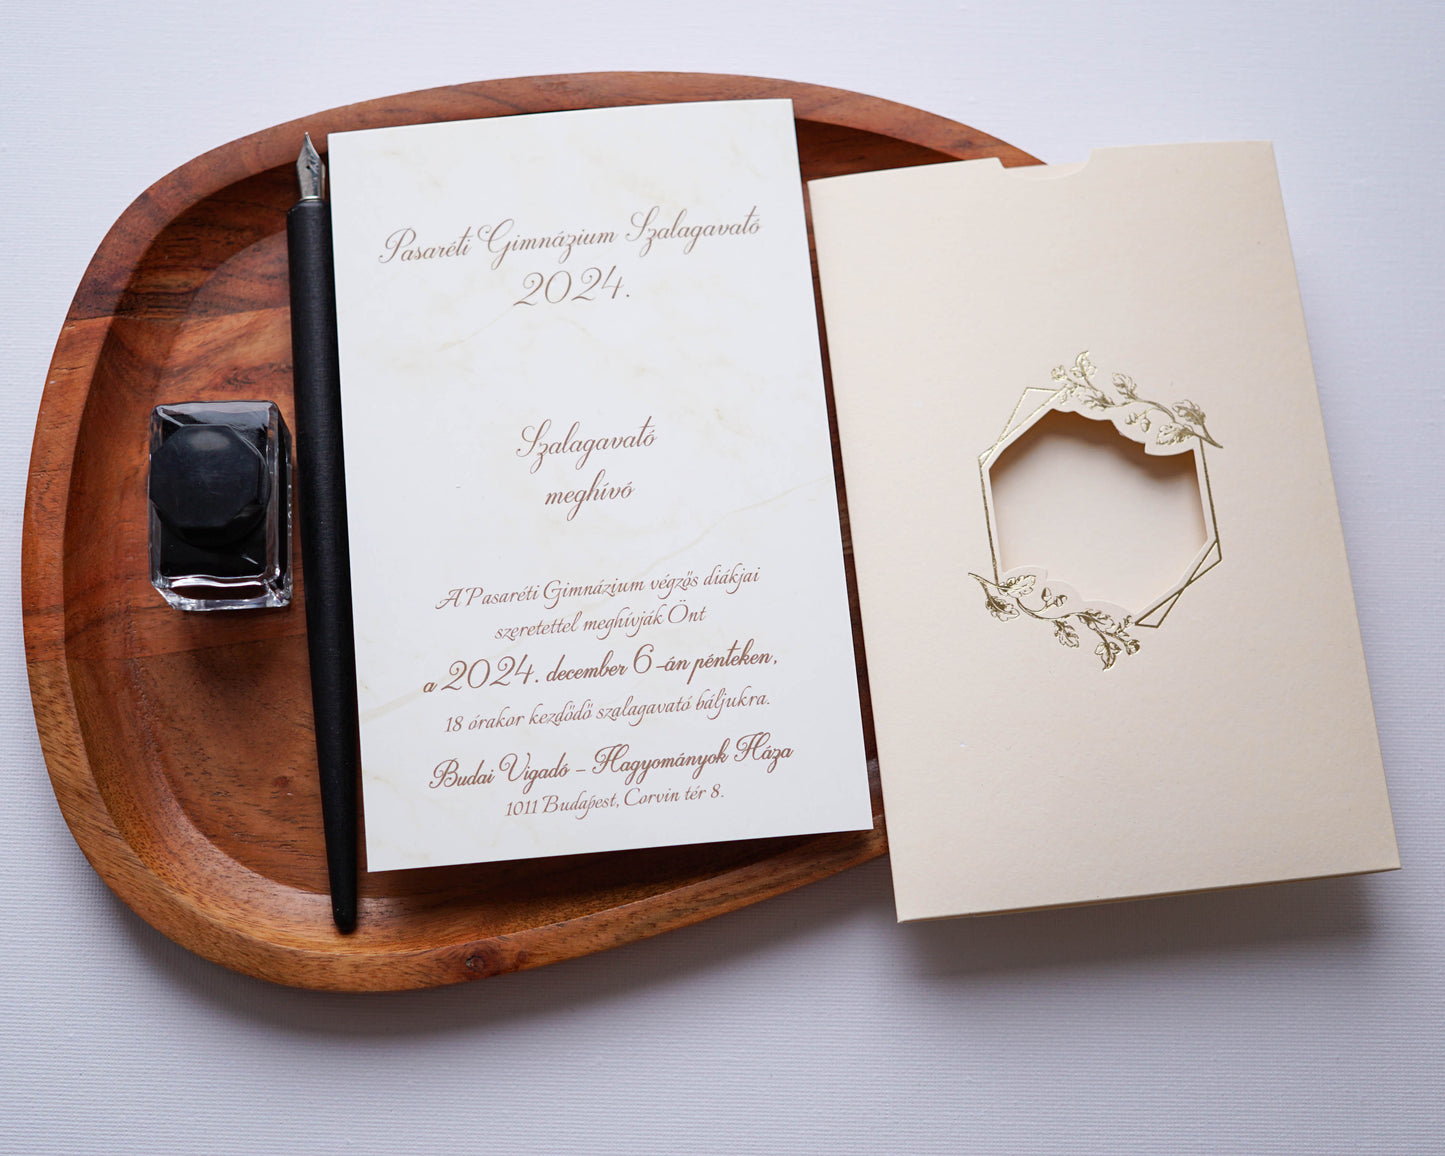 Pasaréti Gimnázium Szalagavató
2024.
Szalagavató
meghívó
A Pasaréti Gimnázium végzős diákjai
szeretettel meghívják Önt
a 2024. december 6-án pénteken,
18 órakor kezdődő szalagavató báljukra.
Budai Vigadó - Hagyományok Háza
1011 Budapest, Corvin tér 8.